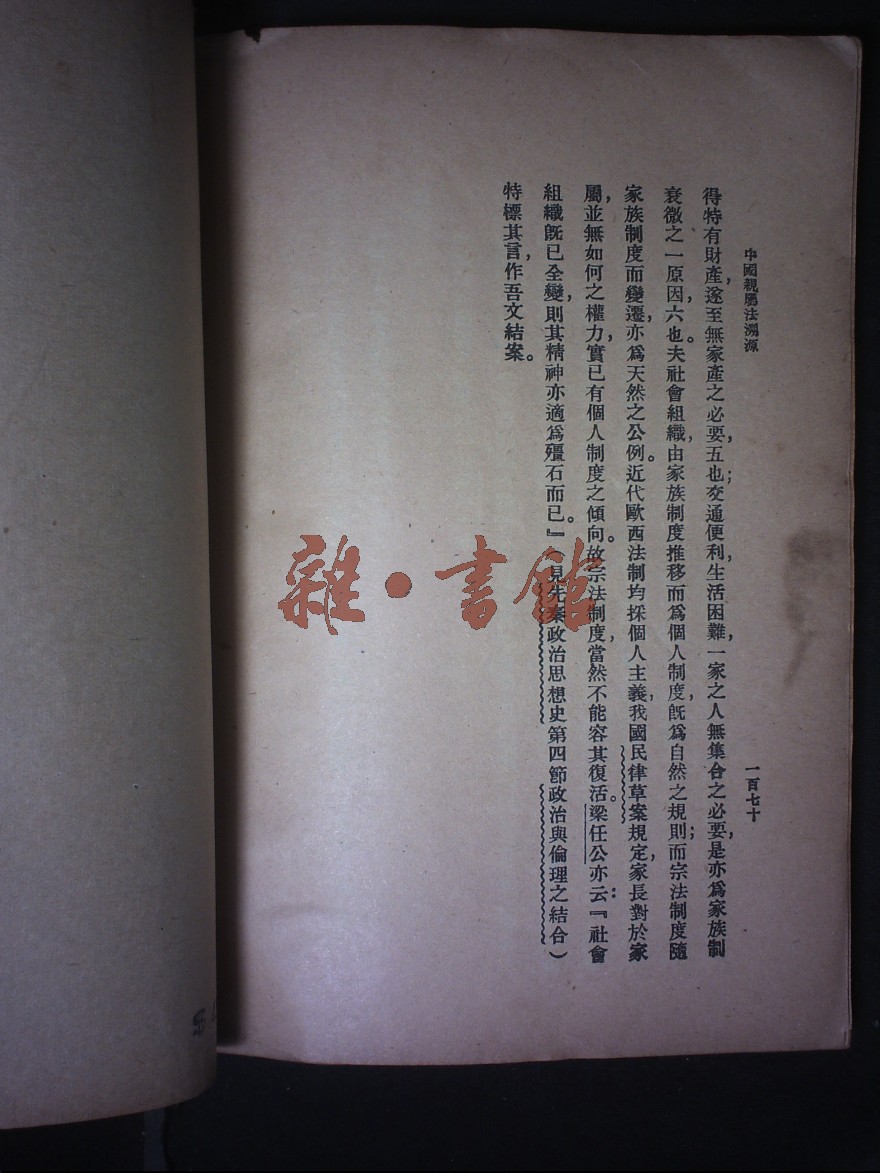 中國親屬法溯源
一百七十
得特有財產，遂至無家產之必要，五也；交通便利，生活困難，一家之人無集合之必要，是亦爲家族制
衰微之一原因，六也。夫社會組織，由家族制度推移而爲個人制度，旣爲自然之規則；而宗法制度隨
家族制度而變遷，亦爲天然之公例。近代歐西法制均採個人主義，我國民律草案規定，家長對於家
屬，並無如何之權力，實已有個人制度之傾向。故宗法制度，當然不能容其復活。梁任公亦云：『社會
組織旣已全變，則其精神亦適爲殭石而已。』（見先秦政治思想史第四節政治與倫理之結合）
特標其言，作吾文結案。
雜·書館